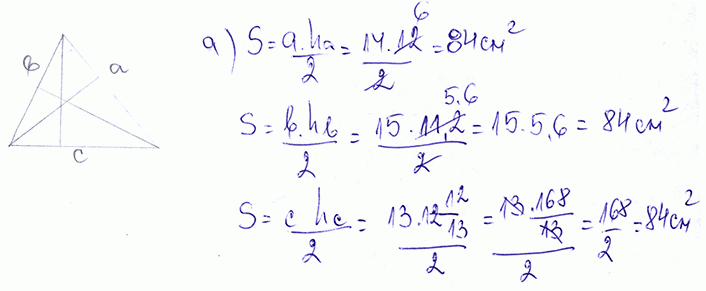 a) S = a.ha/2 = 14.12/2 6 = 84 см²
S = b.hb/2 = 15.11,2/2 5,6 = 15.5,6 = 84 см²
S = c hc/2 = 13.12 12/13/2 = 13.168/13/2 = 168/2 = 84 см²
b a
c